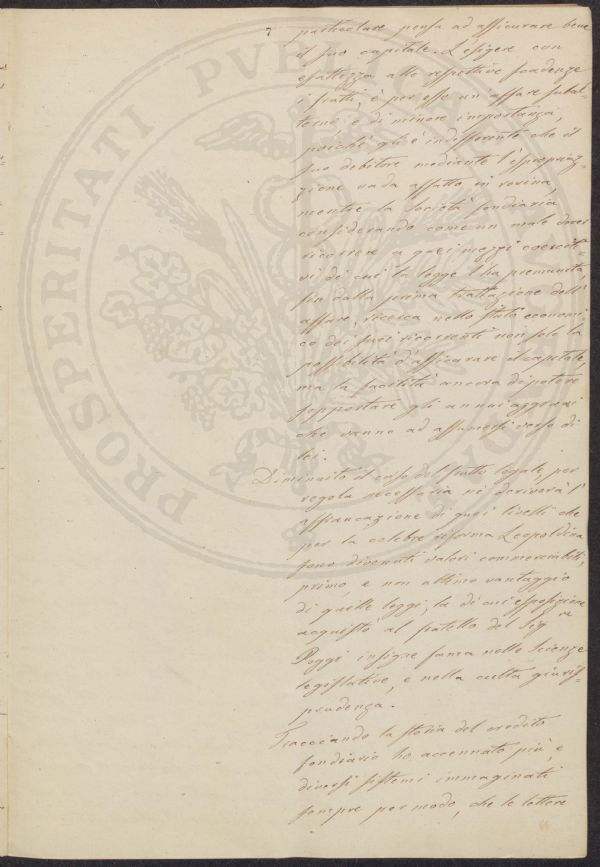 7
particolare pensa ad assicurare bene
il suo capitale. L'esigere con
esattezza alle respettive scadenze
i frutti, è per esso un affare subal-
terno e di minore importanza,
poichè gli è indifferente che il
suo debitore mediante l'espropria-
zione vada affatto in rovina,
mentre la Società fondiaria
considerando come un male dover
ricorrere a quei mezzi coerciti-
vi di cui la legge l'ha premunita,
fin dalla prima trattazione dell'
affare, ricerca nello stato economi
co dei suoi ricorrenti non solo la
possibilità d'assicurare il capitale,
ma la facilità ancora di potere
sopportare gli annui aggravi
che vanno ad assumersi verso di
lei.
Diminuito il corso del frutto legale, per
regola necessaria ne deriverà l'
affrancazione di quei livelli che
per la celebre riforma Leopoldina
sono divenuti valori commerciabili,
primo, e non ultimo vantaggio
di quelle leggi, la di cui esposizione
acquistò al fratello del Sig.re
Poggi insigne fama nelle Scienze
legislative, e nella culta giuris-
prudenza.
Tracciando la storia del credito
fondiario ho accennato più, e
diversi sistemi immaginati
sempre per modo, che le lettere
PROSPERITATI PVBLICAE